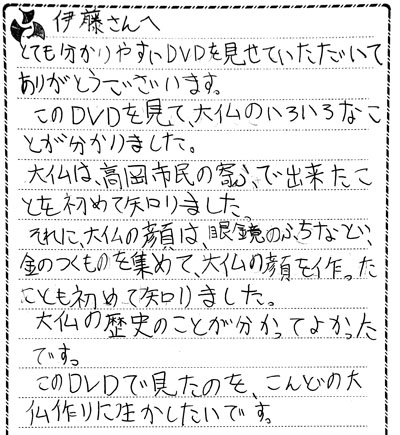 伊藤さんへ
とても分かりやすいDVDを見せていただいて
ありがとうございます。
このDVDを見て、大仏のいろいろなこ
とが分かりました。
大仏は、高岡市民の寄ふで出来たこ
とを初めて知りました。
それに、大仏の顔は、眼鏡のふちなど、
金のつくものを集めて、大仏の顔を作った
ことも初めて知りました。
大仏の歴史のことが分かってよかった
です。
このDVDで見たのを、こんどの大
仏作りに生かしたいです。